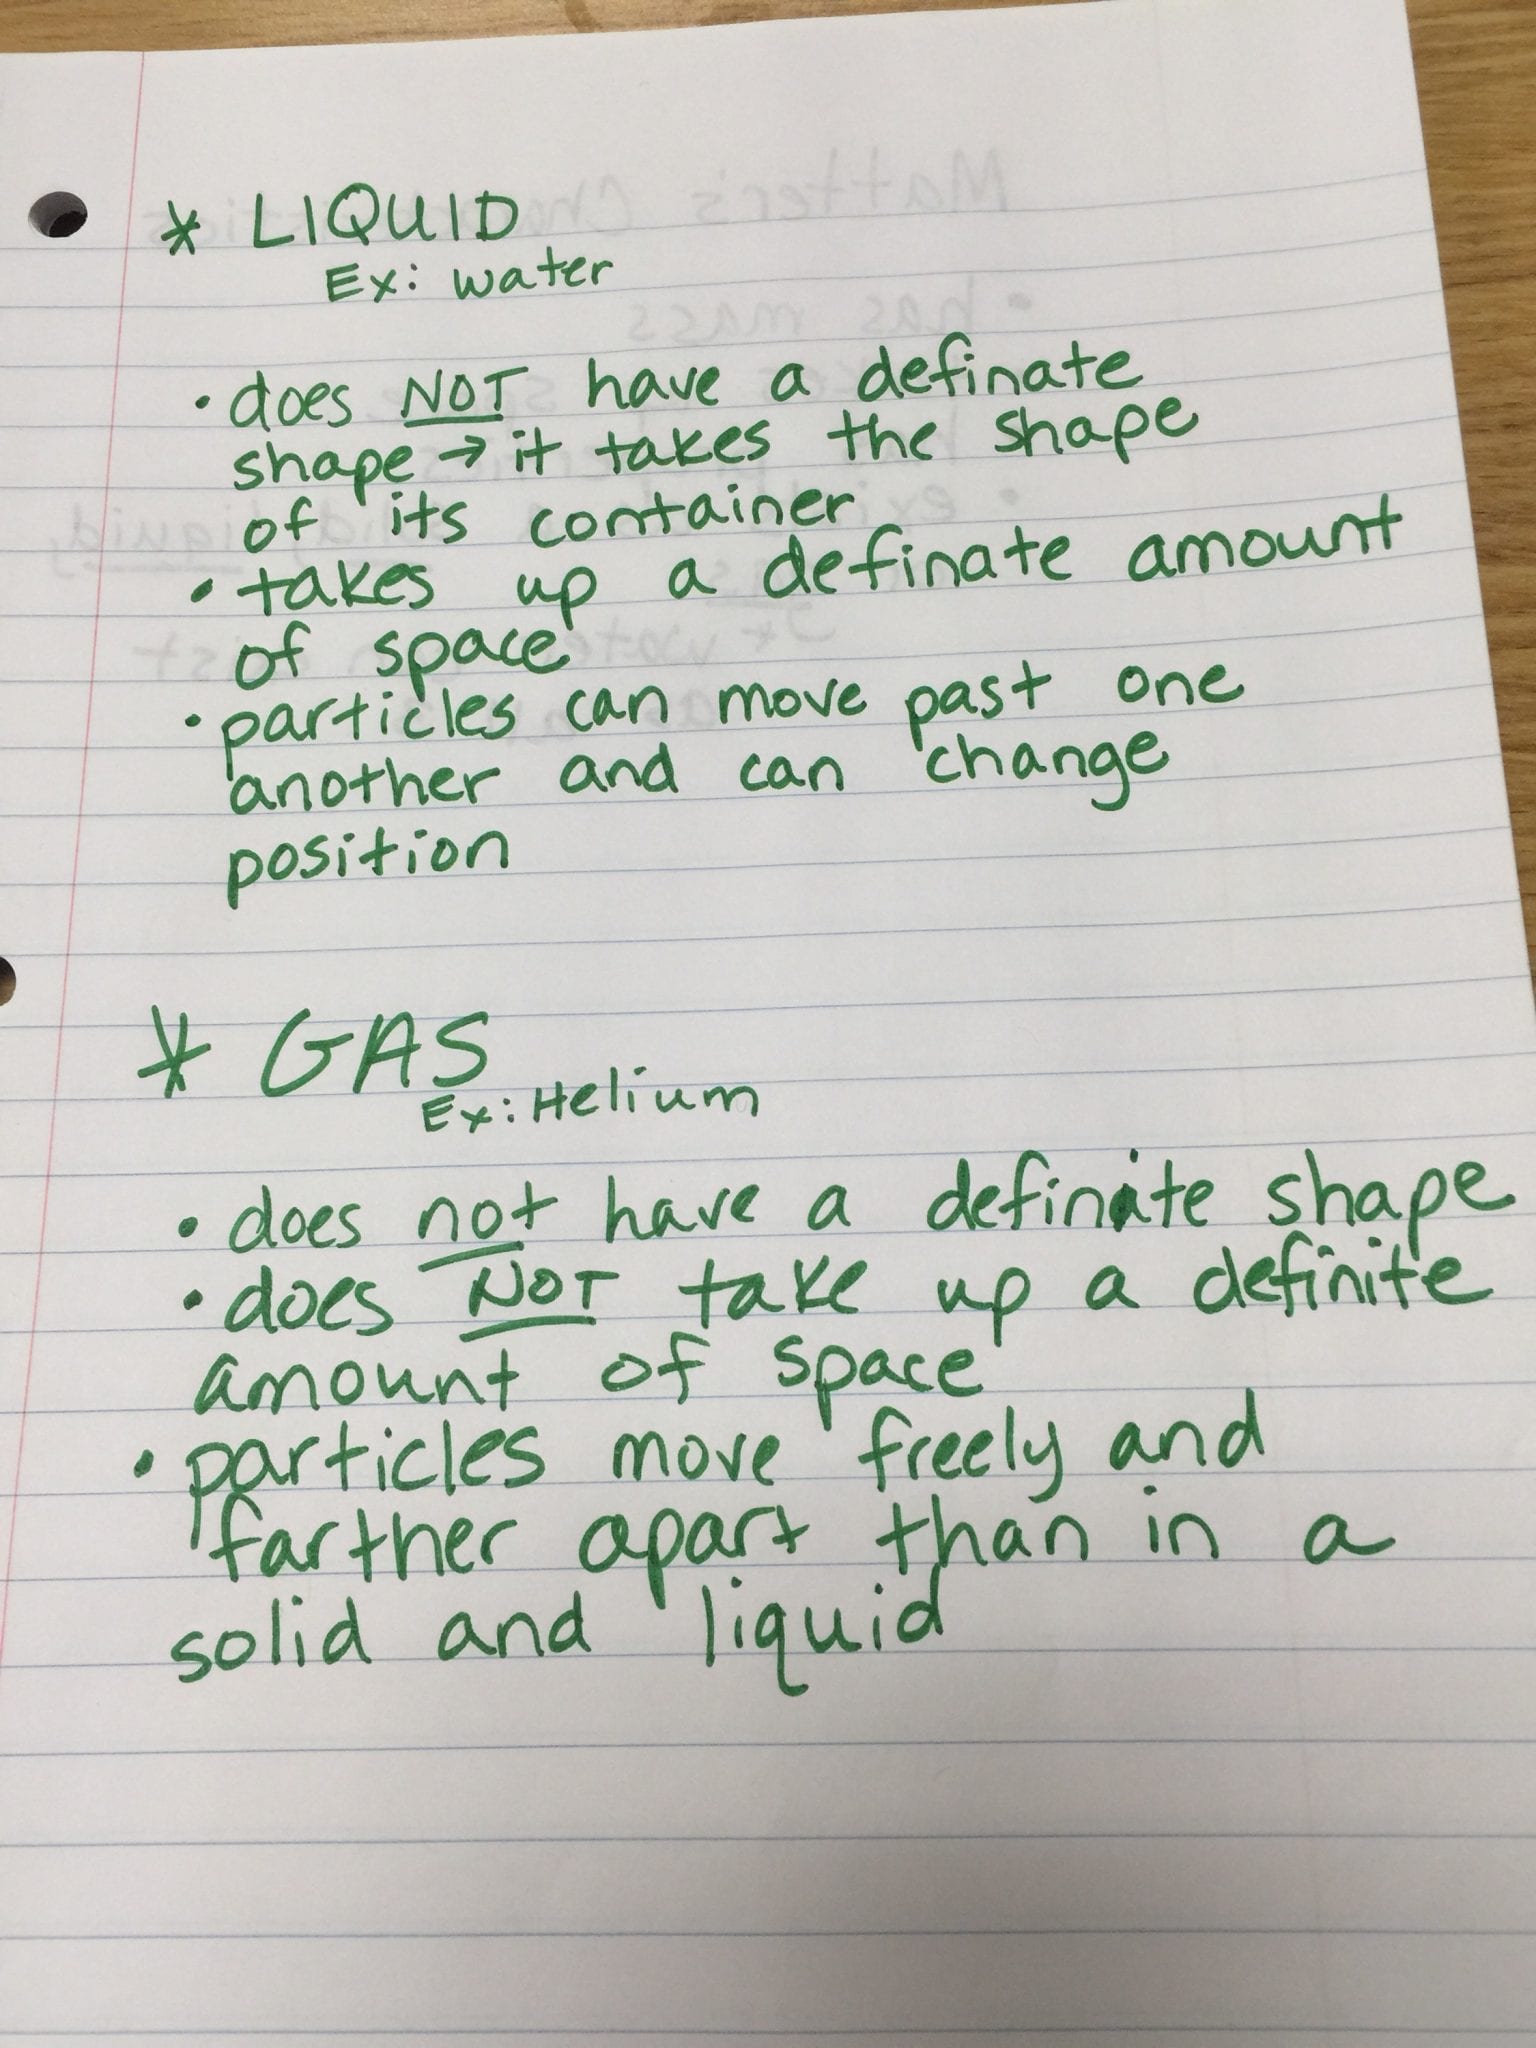 * LIQUID
Ex: water
• does NOT have a definate
shape → it takes the shape
of its container
• takes up a definate amount
of space
• particles can move past one
another and can change
position
* GAS
Ex: Helium
• does not have a definite shape
• does NOT take up a definite
amount of space
• particles move freely and
farther apart than in a
solid and liquid